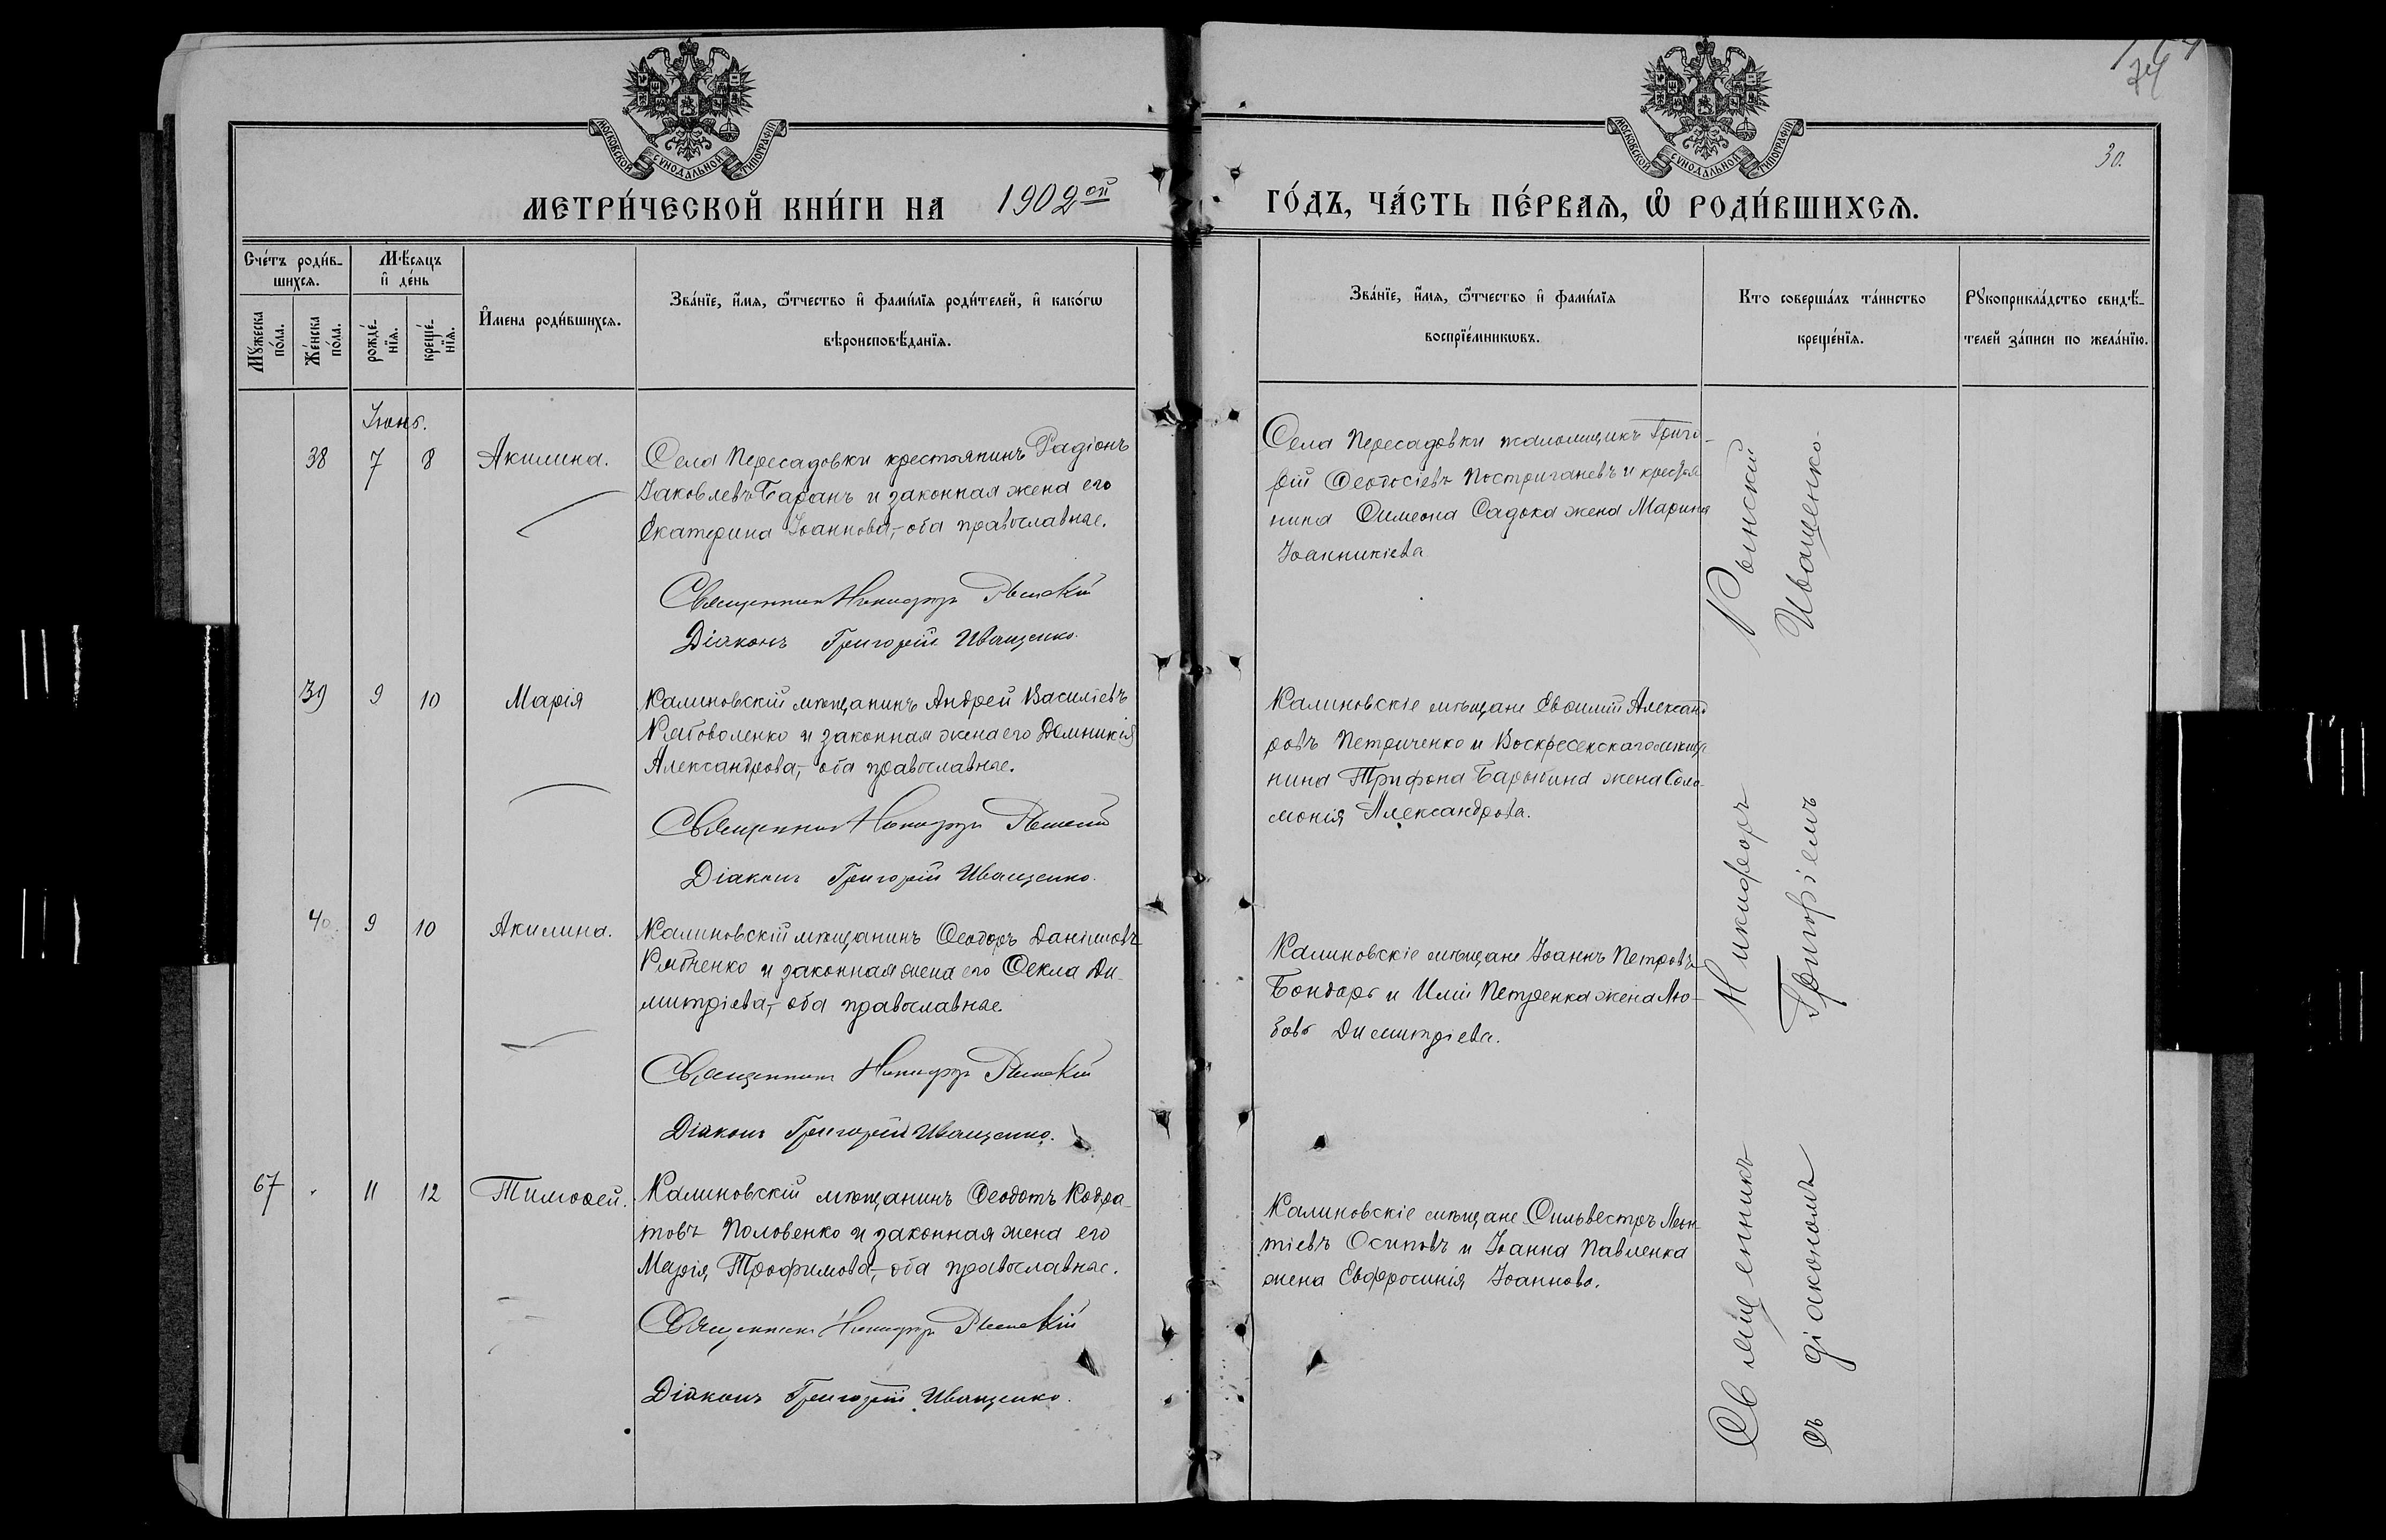 74
30.
МОСКОВСКОЙ СѴНОДАЛЬНОЙ ТИПОГРАФІИ
МОСКОВСКОЙ СѴНОДАЛЬНОЙ ТИПОГРАФІИ
МЕТРИ́ЧЕСКОЙ КНИ́ГИ НА 1902ой
ГО́ДЪ, ЧА́СТЬ ПЕ́РВАѦ, Ѽ РОДИ́ВШИХСѦ.
Сче́тъ роди́в-
шихсѧ.
Мꙋ́жеска
по́ла.
Же́нска
по́ла.
Мѣ́сѧцъ
и҆ де́нь
рожде́-
нїѧ.
креще́-
нїѧ.
И҆мена роди́вшихсѧ.
Зва́нїе, и҆́мѧ, ѻ҆́тчество и҆ фами́лїѧ роди́телей, и҆ како́гѡ
вѣроисповѣ́данїѧ.
Зва́нїе, и҆́мѧ, ѻ҆́тчество и҆ фами́лїѧ
воспрїе́мникѡвъ.
Кто соверша́лъ та́инство
креще́нїѧ.
Рꙋкоприкла́дство свидѣ́-
телей за́писи по жела́нїю.
Іюнь.
38 7 8 Акилина.
Села Пересадовки крестьянинъ Радіонъ
Іаковлевъ Баранъ и законная жена его
Екатерина Іоаннова,- оба православные.
Священникъ Никифоръ Рынскій
Діаконъ Григорій Иващенко.
Села Пересадовки Григо-
рій Ѳеодосіевъ и крестья
нина Симеона Садока жена Марина
Іоанникіева
39 9 10 Марія
Калиновскій мѣщанинъ Андрей Василіевъ
и законная жена его Домникія
Александрова,- оба православные.
Священникъ Никифоръ Рынскій
Діаконъ Григорій Иващенко.
Калиновскіе мѣщане Евѳимій Александ
ровъ Петриченко и Воскресенскаго мѣща
нина Трифона жена Соло-
монія Александрова.
40. 9 10 Акилина.
Калиновскій мѣщанинъ Ѳеодоръ Даніиловъ
и законная жена его Ѳекла Ди-
митріева,- оба православные.
Священникъ Никифоръ Рынскій
Діаконъ Григорій Иващенко.
Калиновскіе мѣщане Іоаннъ Петровъ
Бондарь и Иліи Петренка жена Лю-
бовь Димитріева.
67 11 12 Тимоѳей.
Калиновскій мѣщанинъ Ѳеодотъ Кодра-
товъ Половенко и законная жена его
Марія Трофимова,- оба православные.
Священникъ Никифоръ Рынскій
Діаконъ Григорій Иващенко.
Калиновскіе мѣщане Сильвестръ Леон
тіевъ Осиповъ и Іоанна Павленка
жена Евфросинія Іоаннова.
Священникъ Никифоръ Рынскій
съ діакономъ Григоріемъ Иващенко.